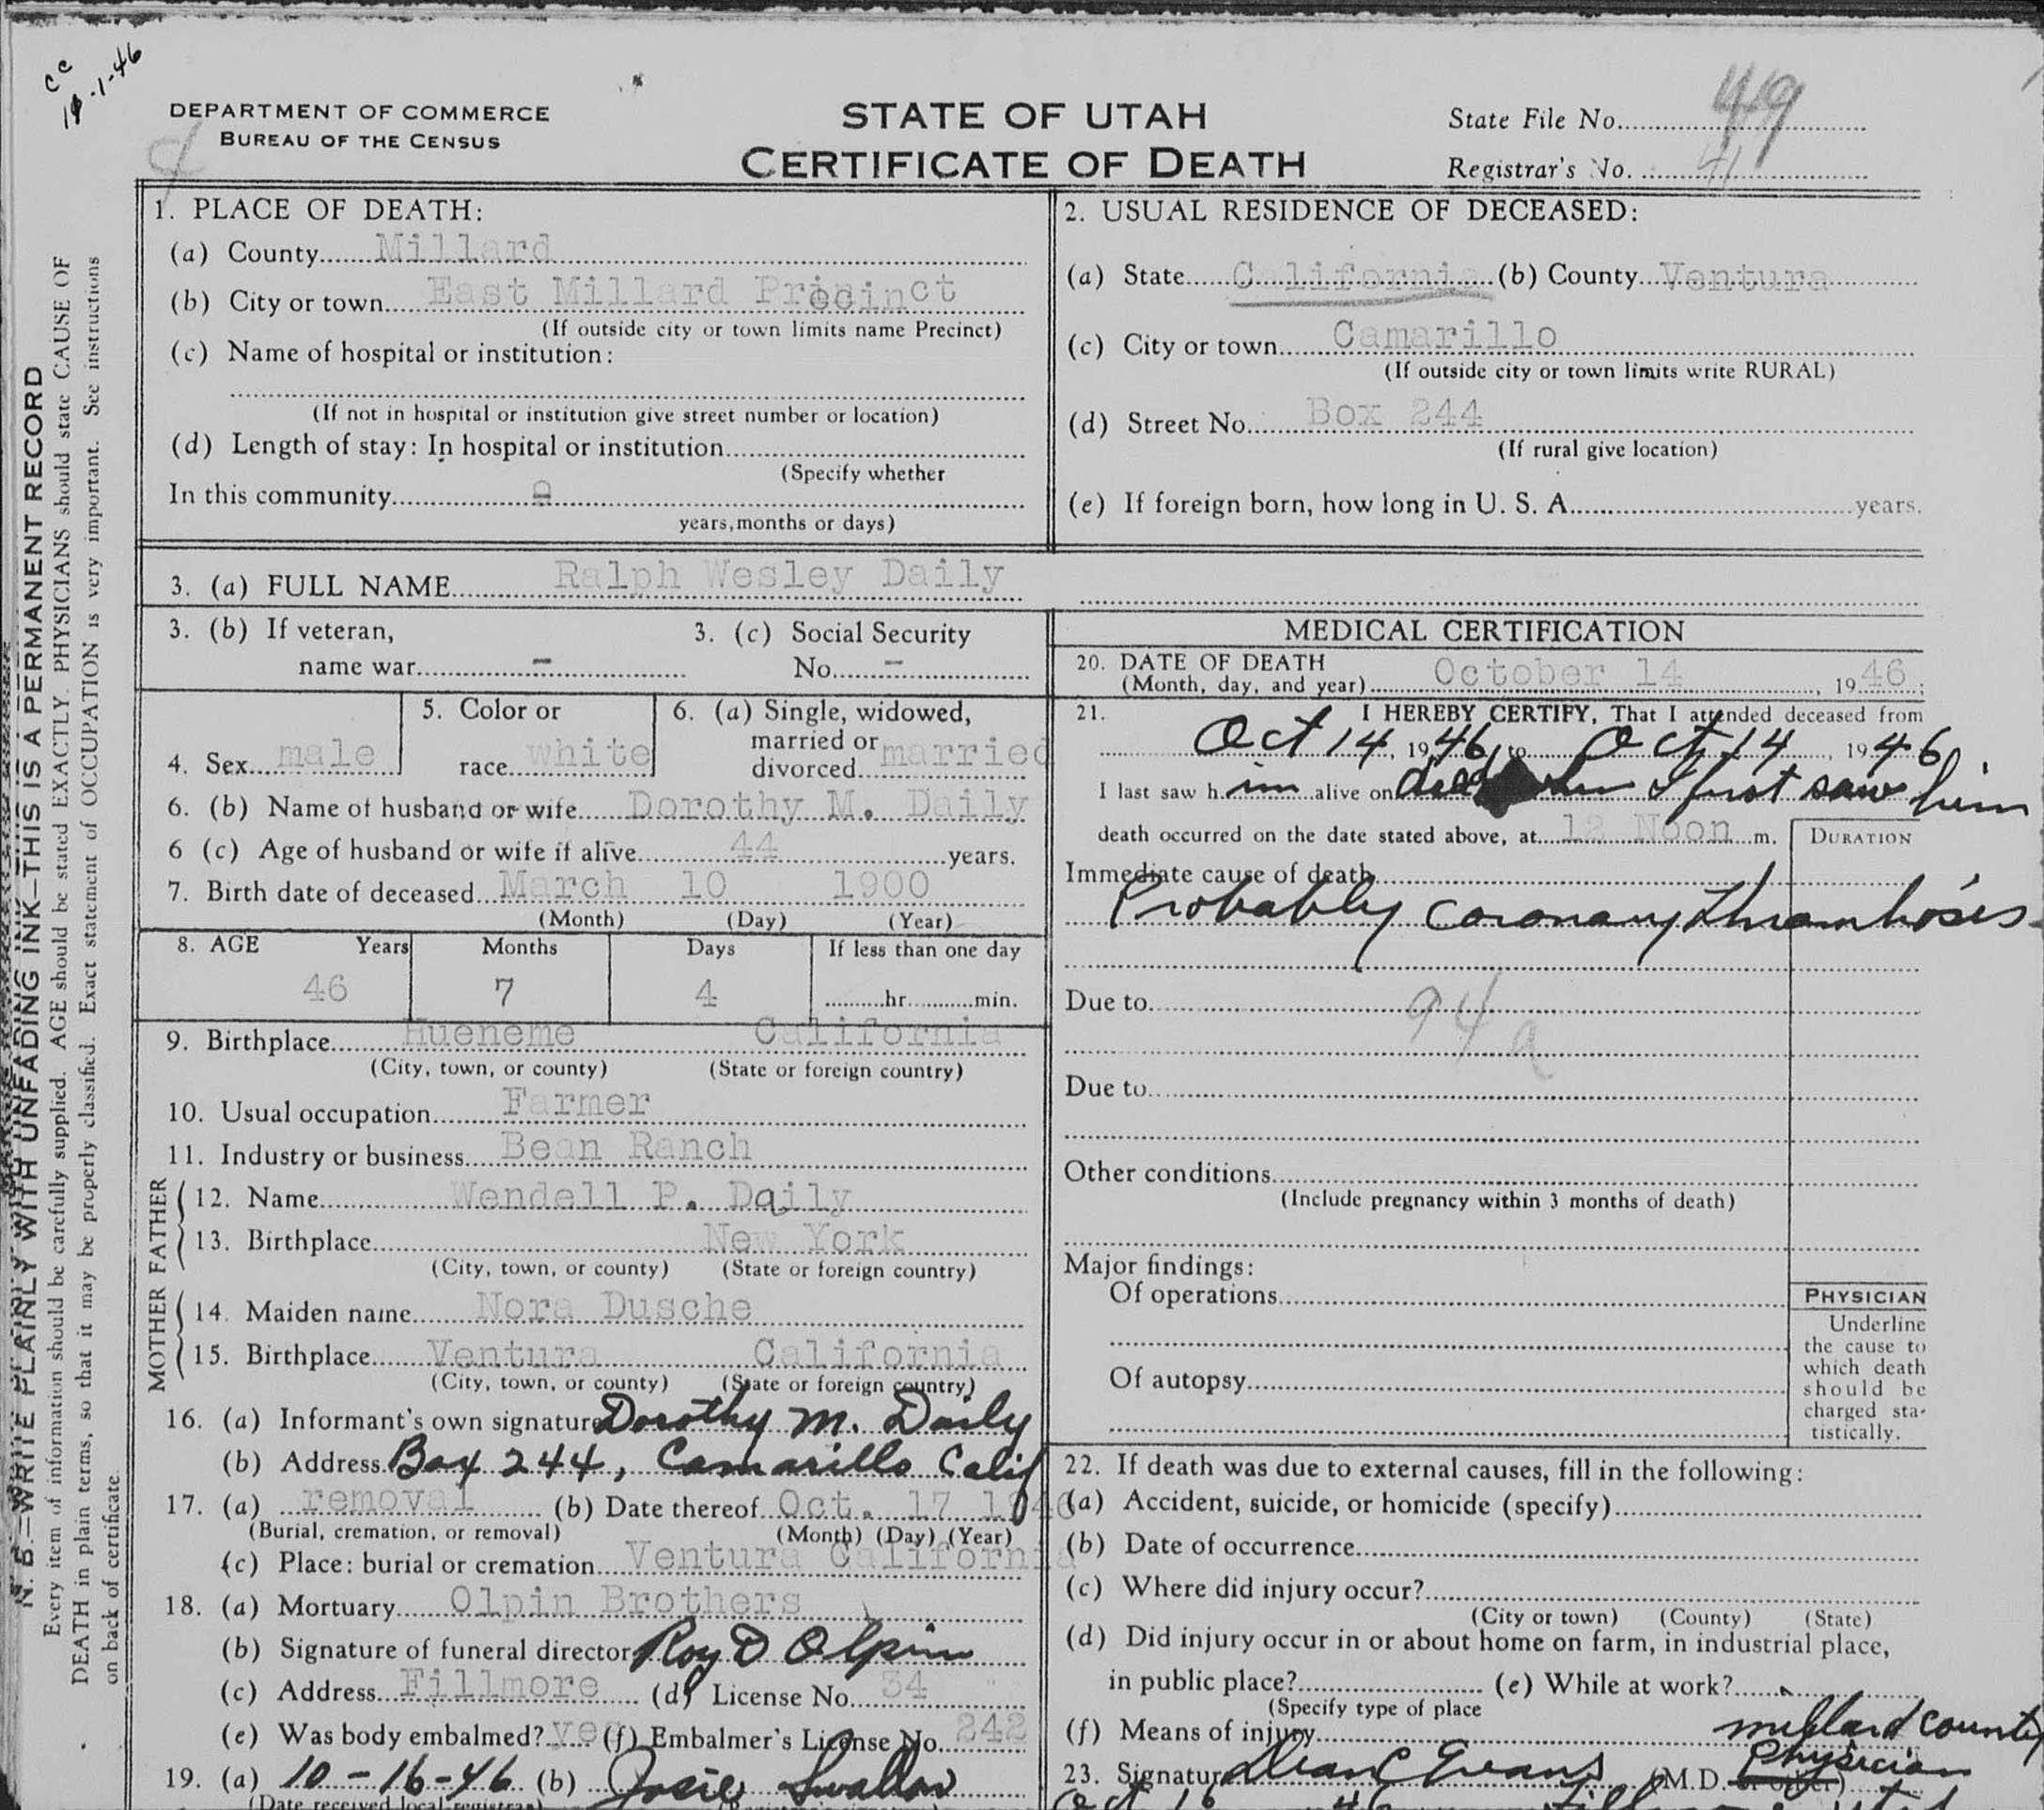 cc
11-1-46
DEPARTMENT OF COMMERCE
BUREAU OF THE CENSUS
STATE OF UTAH
CERTIFICATE OF DEATH
State File No. 49
Registrar's No. 41
N. B.—WRITE PLAINLY WITH UNFADING INK—THIS IS A PERMANENT RECORD
Every item of information should be carefully supplied. AGE should be stated EXACTLY. PHYSICIANS should state CAUSE OF
DEATH in plain terms, so that it may be properly classified. Exact statement of OCCUPATION is very important. See instructions
on back of certificate.
1. PLACE OF DEATH:
(a) County Millard
(b) City or town East Millard Precinct
(If outside city or town limits name Precinct)
(c) Name of hospital or institution:
(If not in hospital or institution give street number or location)
(d) Length of stay: In hospital or institution
(Specify whether
In this community 0
years, months or days)
2. USUAL RESIDENCE OF DECEASED:
(a) State California (b) County Ventura
(c) City or town Camarillo
(If outside city or town limits write RURAL)
(d) Street No. Box 244
(If rural give location)
(e) If foreign born, how long in U. S. A. years.
3. (a) FULL NAME Ralph Wesley Daily
3. (b) If veteran,
name war -
3. (c) Social Security
No. -
4. Sex male
5. Color or
race white
6. (a) Single, widowed,
married or
divorced married
6. (b) Name of husband or wife Dorothy M. Daily
6 (c) Age of husband or wife if alive 44 years.
7. Birth date of deceased March 10 1900
(Month) (Day) (Year)
8. AGE Years Months Days If less than one day
46 7 4 hr. min.
9. Birthplace Hueneme California
(City, town, or county) (State or foreign country)
10. Usual occupation Farmer
11. Industry or business Bean Ranch
FATHER
12. Name Wendell P. Daily
13. Birthplace New York
(City, town, or county) (State or foreign country)
MOTHER
14. Maiden name Nora Dusche
15. Birthplace Ventura California
(City, town, or county) (State or foreign country)
16. (a) Informant's own signature Dorothy M. Daily
(b) Address Box 244, Camarillo Calif
17. (a) removal (b) Date thereof Oct. 17 1946
(Burial, cremation, or removal) (Month) (Day) (Year)
(c) Place: burial or cremation Ventura California
18. (a) Mortuary Olpin Brothers
(b) Signature of funeral director Roy D Olpin
(c) Address Fillmore (d) License No. 34
(e) Was body embalmed? yes (f) Embalmer's License No. 242
19. (a) 10-16-46 (b) Josie Swallow
(Date received local registrar)
MEDICAL CERTIFICATION
20. DATE OF DEATH
(Month, day, and year) October 14, 1946;
21. I HEREBY CERTIFY, That I attended deceased from
Oct 14, 1946, to Oct 14, 1946
I last saw h im alive on dead when I first saw him
death occurred on the date stated above, at 12 Noon m.
DURATION
Immediate cause of death
Probably Coronary Thrombosis
Due to 94a
Due to
Other conditions
(Include pregnancy within 3 months of death)
Major findings:
Of operations
Of autopsy
PHYSICIAN
Underline
the cause to
which death
should be
charged sta-
tistically.
22. If death was due to external causes, fill in the following:
(a) Accident, suicide, or homicide (specify)
(b) Date of occurrence
(c) Where did injury occur?
(City or town) (County) (State)
(d) Did injury occur in or about home on farm, in industrial place,
in public place? (e) While at work?
(Specify type of place
(f) Means of injury
Millard County
Physician
23. Signature Dean C Evans (M.D. or other)